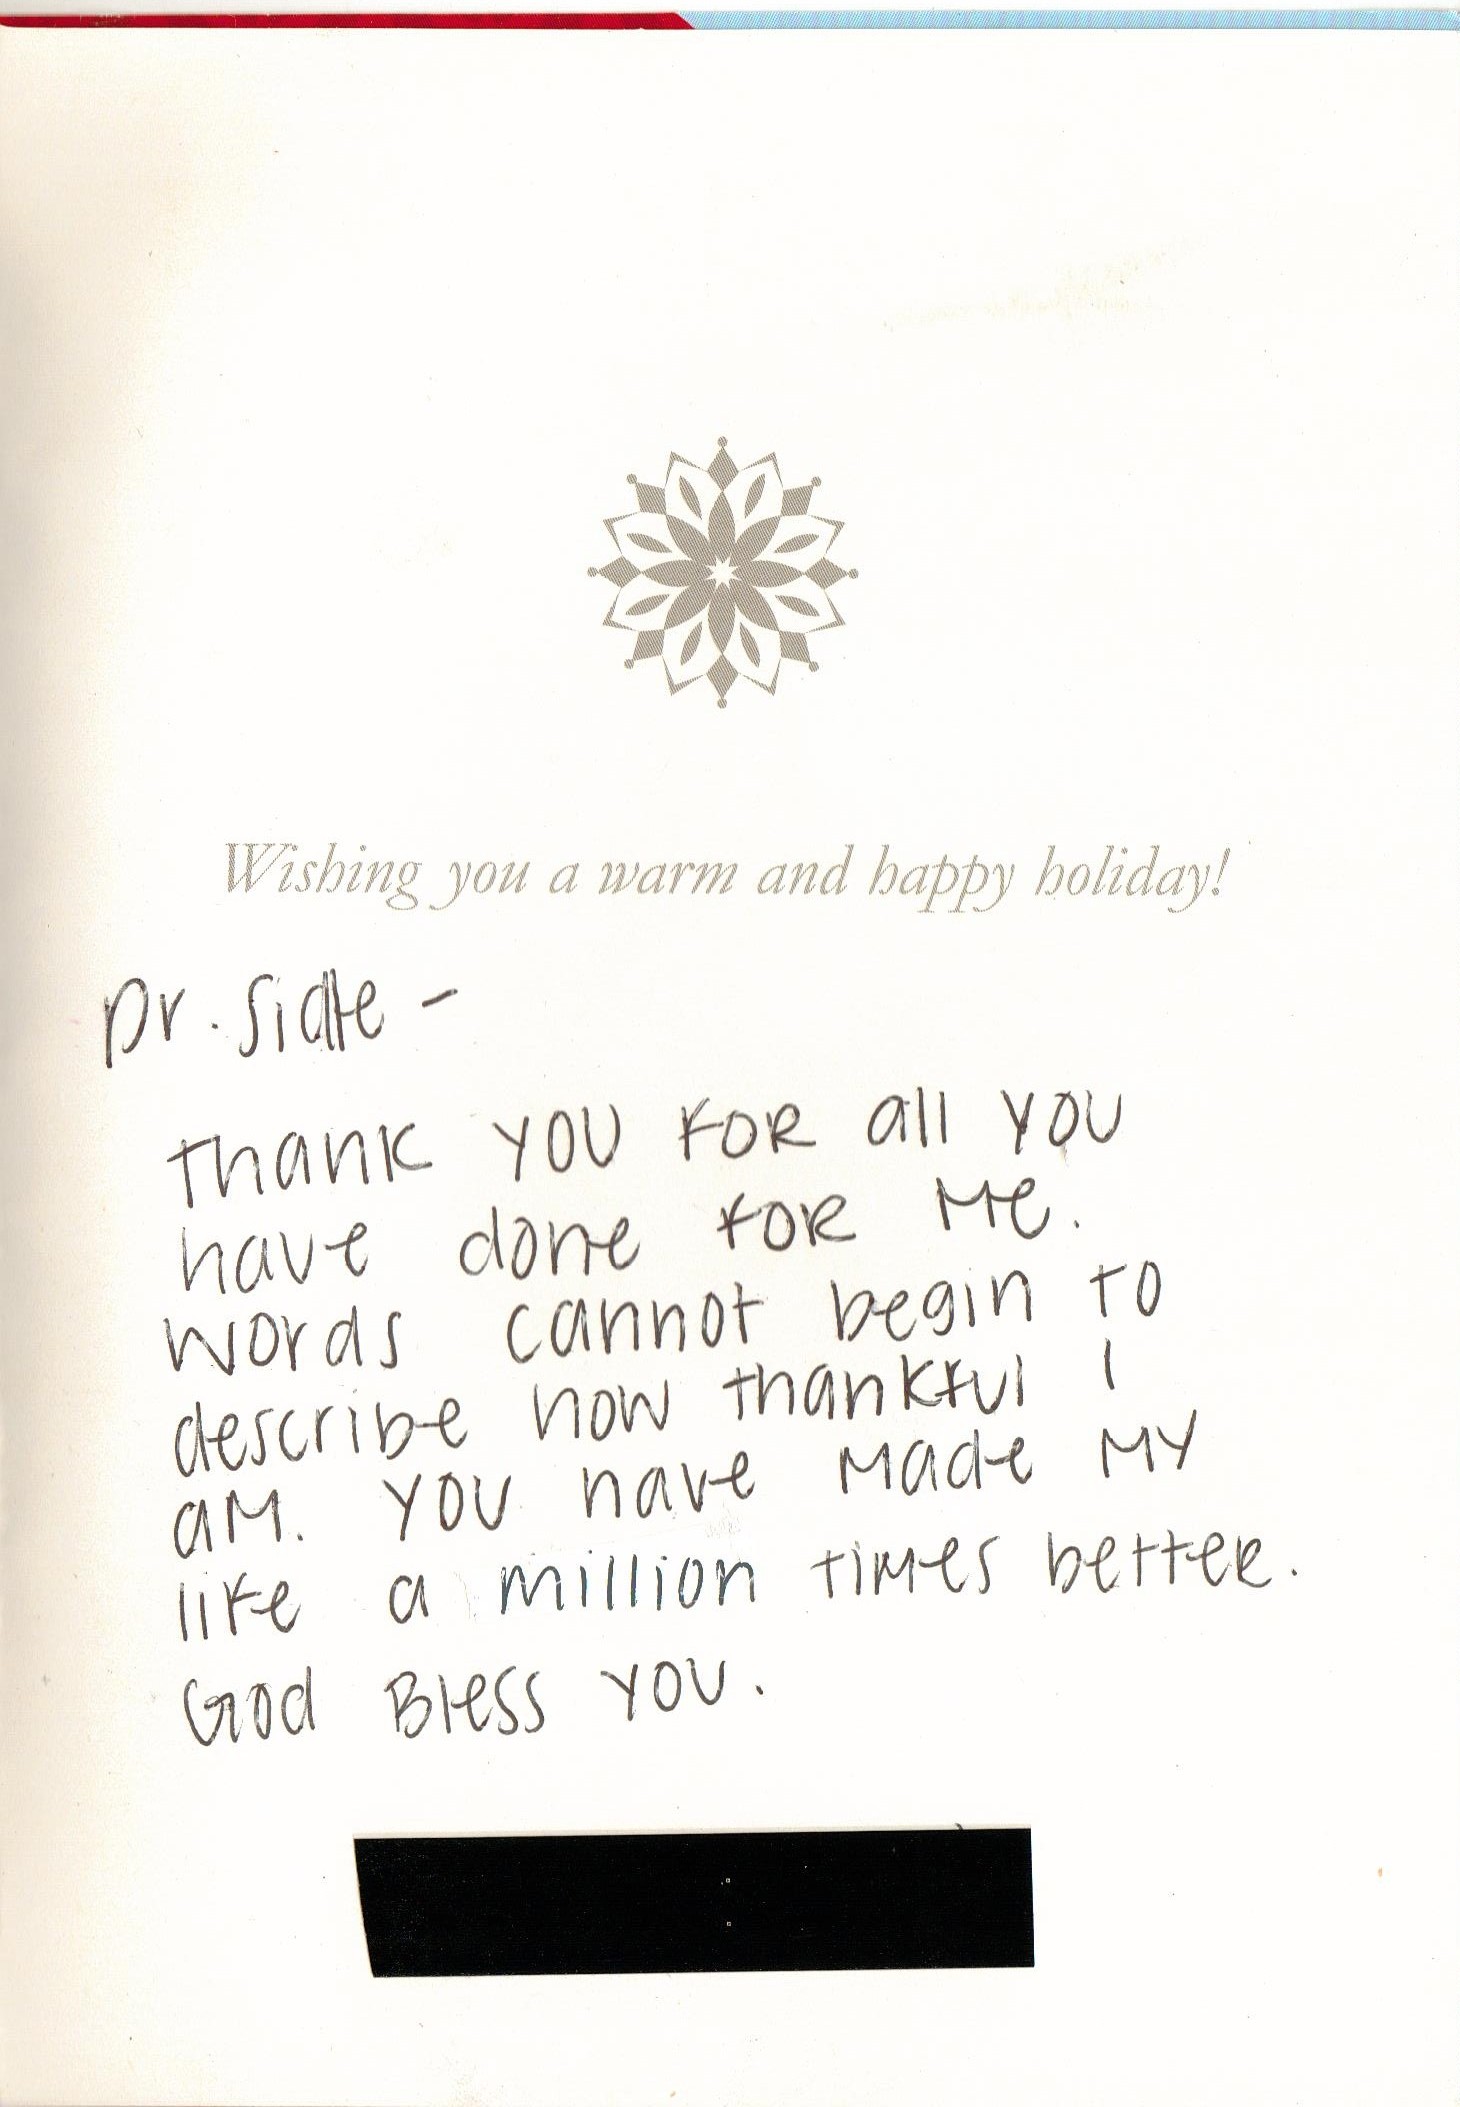 Wishing you a warm and happy holiday!
Dr. Sidle -
Thank you for all you
have done for me.
Words cannot begin to
describe how thankful I
am. You have made my
life a million times better.
God Bless you.